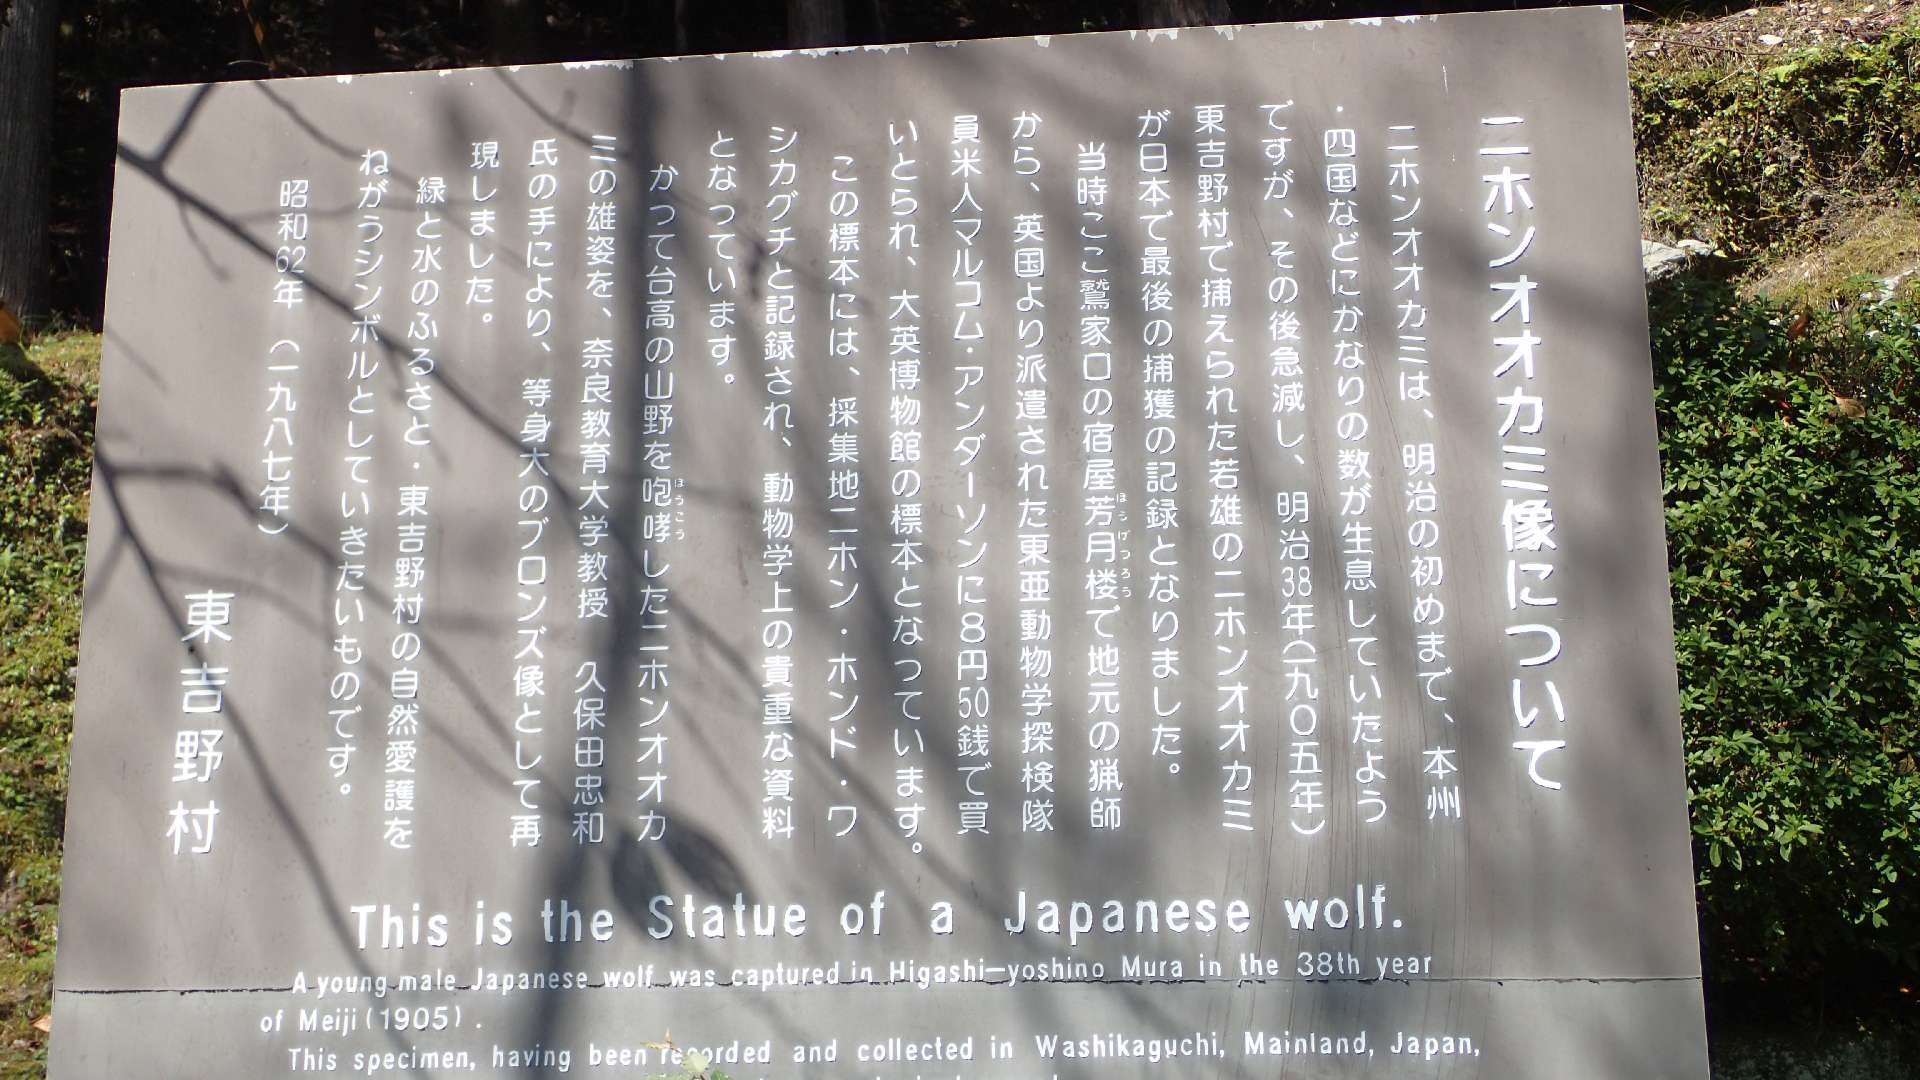 ニホンオオカミ像について
ニホンオオカミは、明治の初めまで、本州
・四国などにかなりの数が生息していたよう
ですが、その後急減し、明治38年(一九〇五年)
東吉野村で捕えられた若雄のニホンオオカミ
が日本で最後の捕獲の記録となりました。
当時ここ鷲家口の宿屋芳月楼で地元の猟師
から、英国より派遣された東亜動物学探検隊
員米人マルコム・アンダーソンに8円50銭で買
いとられ、大英博物館の標本となっています。
この標本には、採集地ニホン・ホンド・ワ
シカグチと記録され、動物学上の貴重な資料
となっています。
かつて台高の山野を咆哮したニホンオオカ
ミの雄姿を、奈良教育大学教授 久保田忠和
氏の手により、等身大のブロンズ像として再
現しました。
緑と水のふるさと・東吉野村の自然愛護を
ねがうシンボルとしていきたいものです。
昭和62年(一九八七年)
東吉野村
ほうげつろう
ほうこう
This is the Statue of a Japanese wolf.
A young male Japanese wolf was captured in Higashi-yoshino Mura in the 38th year
of Meiji (1905).
This specimen, having been recorded and collected in Washikaguchi, Mainland, Japan,